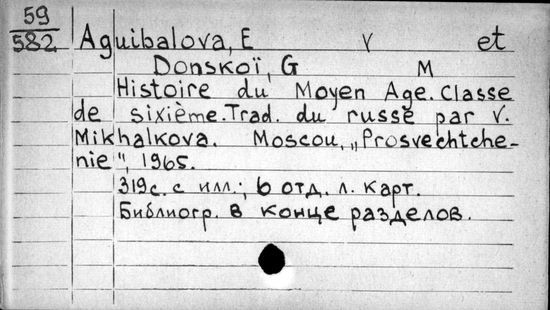 59
582
Aguibalova, E V et
Donskoï, G M
Histoire du Moyen Age. Classe
de sixième. Trad. du russe par V.
Mikhalkova. Moscou, „Prosvechtche-
nie", 1965.
319с. с илл.; 6 отд. л. карт.
Библиогр. в конце разделов.